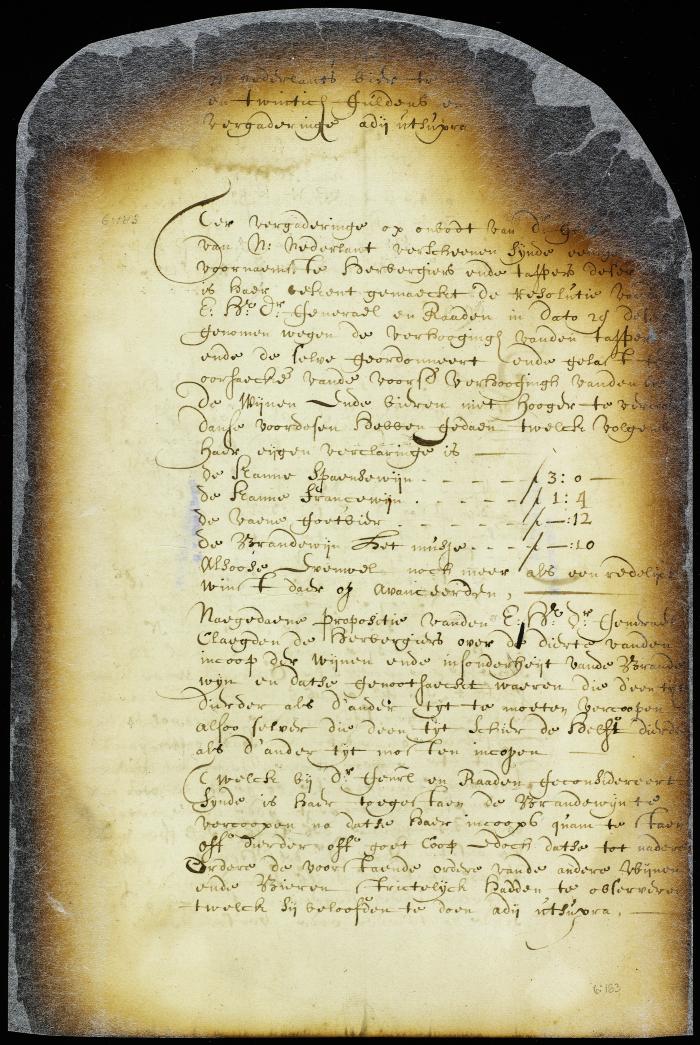 nederlants bier te
en twintich guldens en
vergaderinge adij utsupra
6:183
Ter vergaderinge op onbodt van d'
van N: Nederlant verscheenen sijnde
voornaemste herbergiers ende tappers deser
is haer bekent gemaeckt de resolutie
E: Hr Dr Generael en Raaden in dato 29
genomen wegen de verhooging vanden tapp
ende de selve geordonneert ende gelast
oorsaecke vande voorsr verhoosingh vanden
de Wijnen ende bieren niet hooger te
danse voordesen hebben gedaen twelck volgens
haer eijgen verclaringe is
de kanne Spaensewijn - - - - f 3: 0 —
de kanne francewijn - - - - f 1: 4
de vaene goetbier - - - - f —:12
de Brandewijn het mutsje - - - f —:10
Alsoose evenwel noch meer als een redelijck
winst daer op avanceerden,
Naegedaene propositie vanden E: Hr Dr Generael
Claegden de herbergiers over de dierte vanden
incoop der wijnen ende insonderheijt vande Brande
wijn en datse genootsaeckt waeren die d'een tijt
dierder als d'ander tijt te moeten vercoopen
alsoo selver die deen tijt schier de helft dierder
als d'ander tijt mosten incopen
Twelck bij Dr Genrl en Raaden geconsidereert
sijnde is haer toegestaen de Brandewijn te
vercoopen na datse haer incoops quam te staen
off dierder off goet coop edoch datse tot nader
ordere de voorstaende ordre vande andere Wijnen
ende Bieren strictelijck hadden te observeren
twelck sij beloofden te doen adij utsupra,
6:183